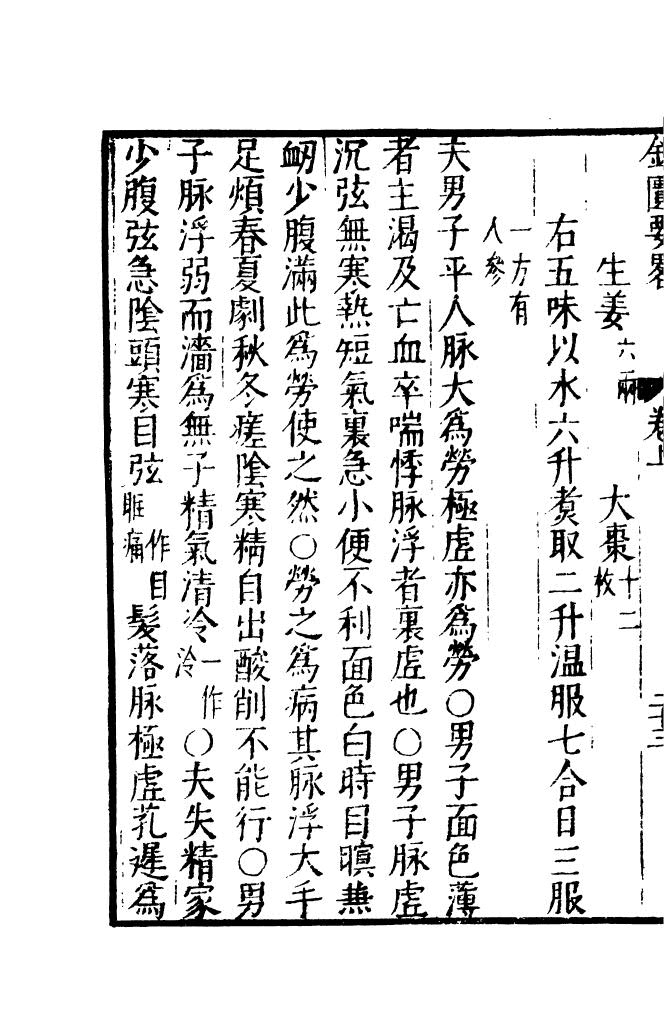 金匱要畧 卷上 二十三
生姜六兩 大棗十二枚
右五味以水六升煑取二升温服七合日三服
一方有人參
夫男子平人脉大為勞極虛亦為勞○男子面色薄
者主渴及亡血卒喘悸脉浮者裏虛也○男子脉虛
沉弦無寒熱短氣裏急小便不利面色白時目瞑兼
衂少腹滿此為勞使之然○勞之為病其脉浮大手
足煩春夏劇秋冬瘥陰寒精自出酸削不能行○男
子脉浮弱而濇為無子精氣清冷一作泠○夫失精家
少腹弦急陰頭寒目弦一作目眶痛髮落脉極虛芤遲為